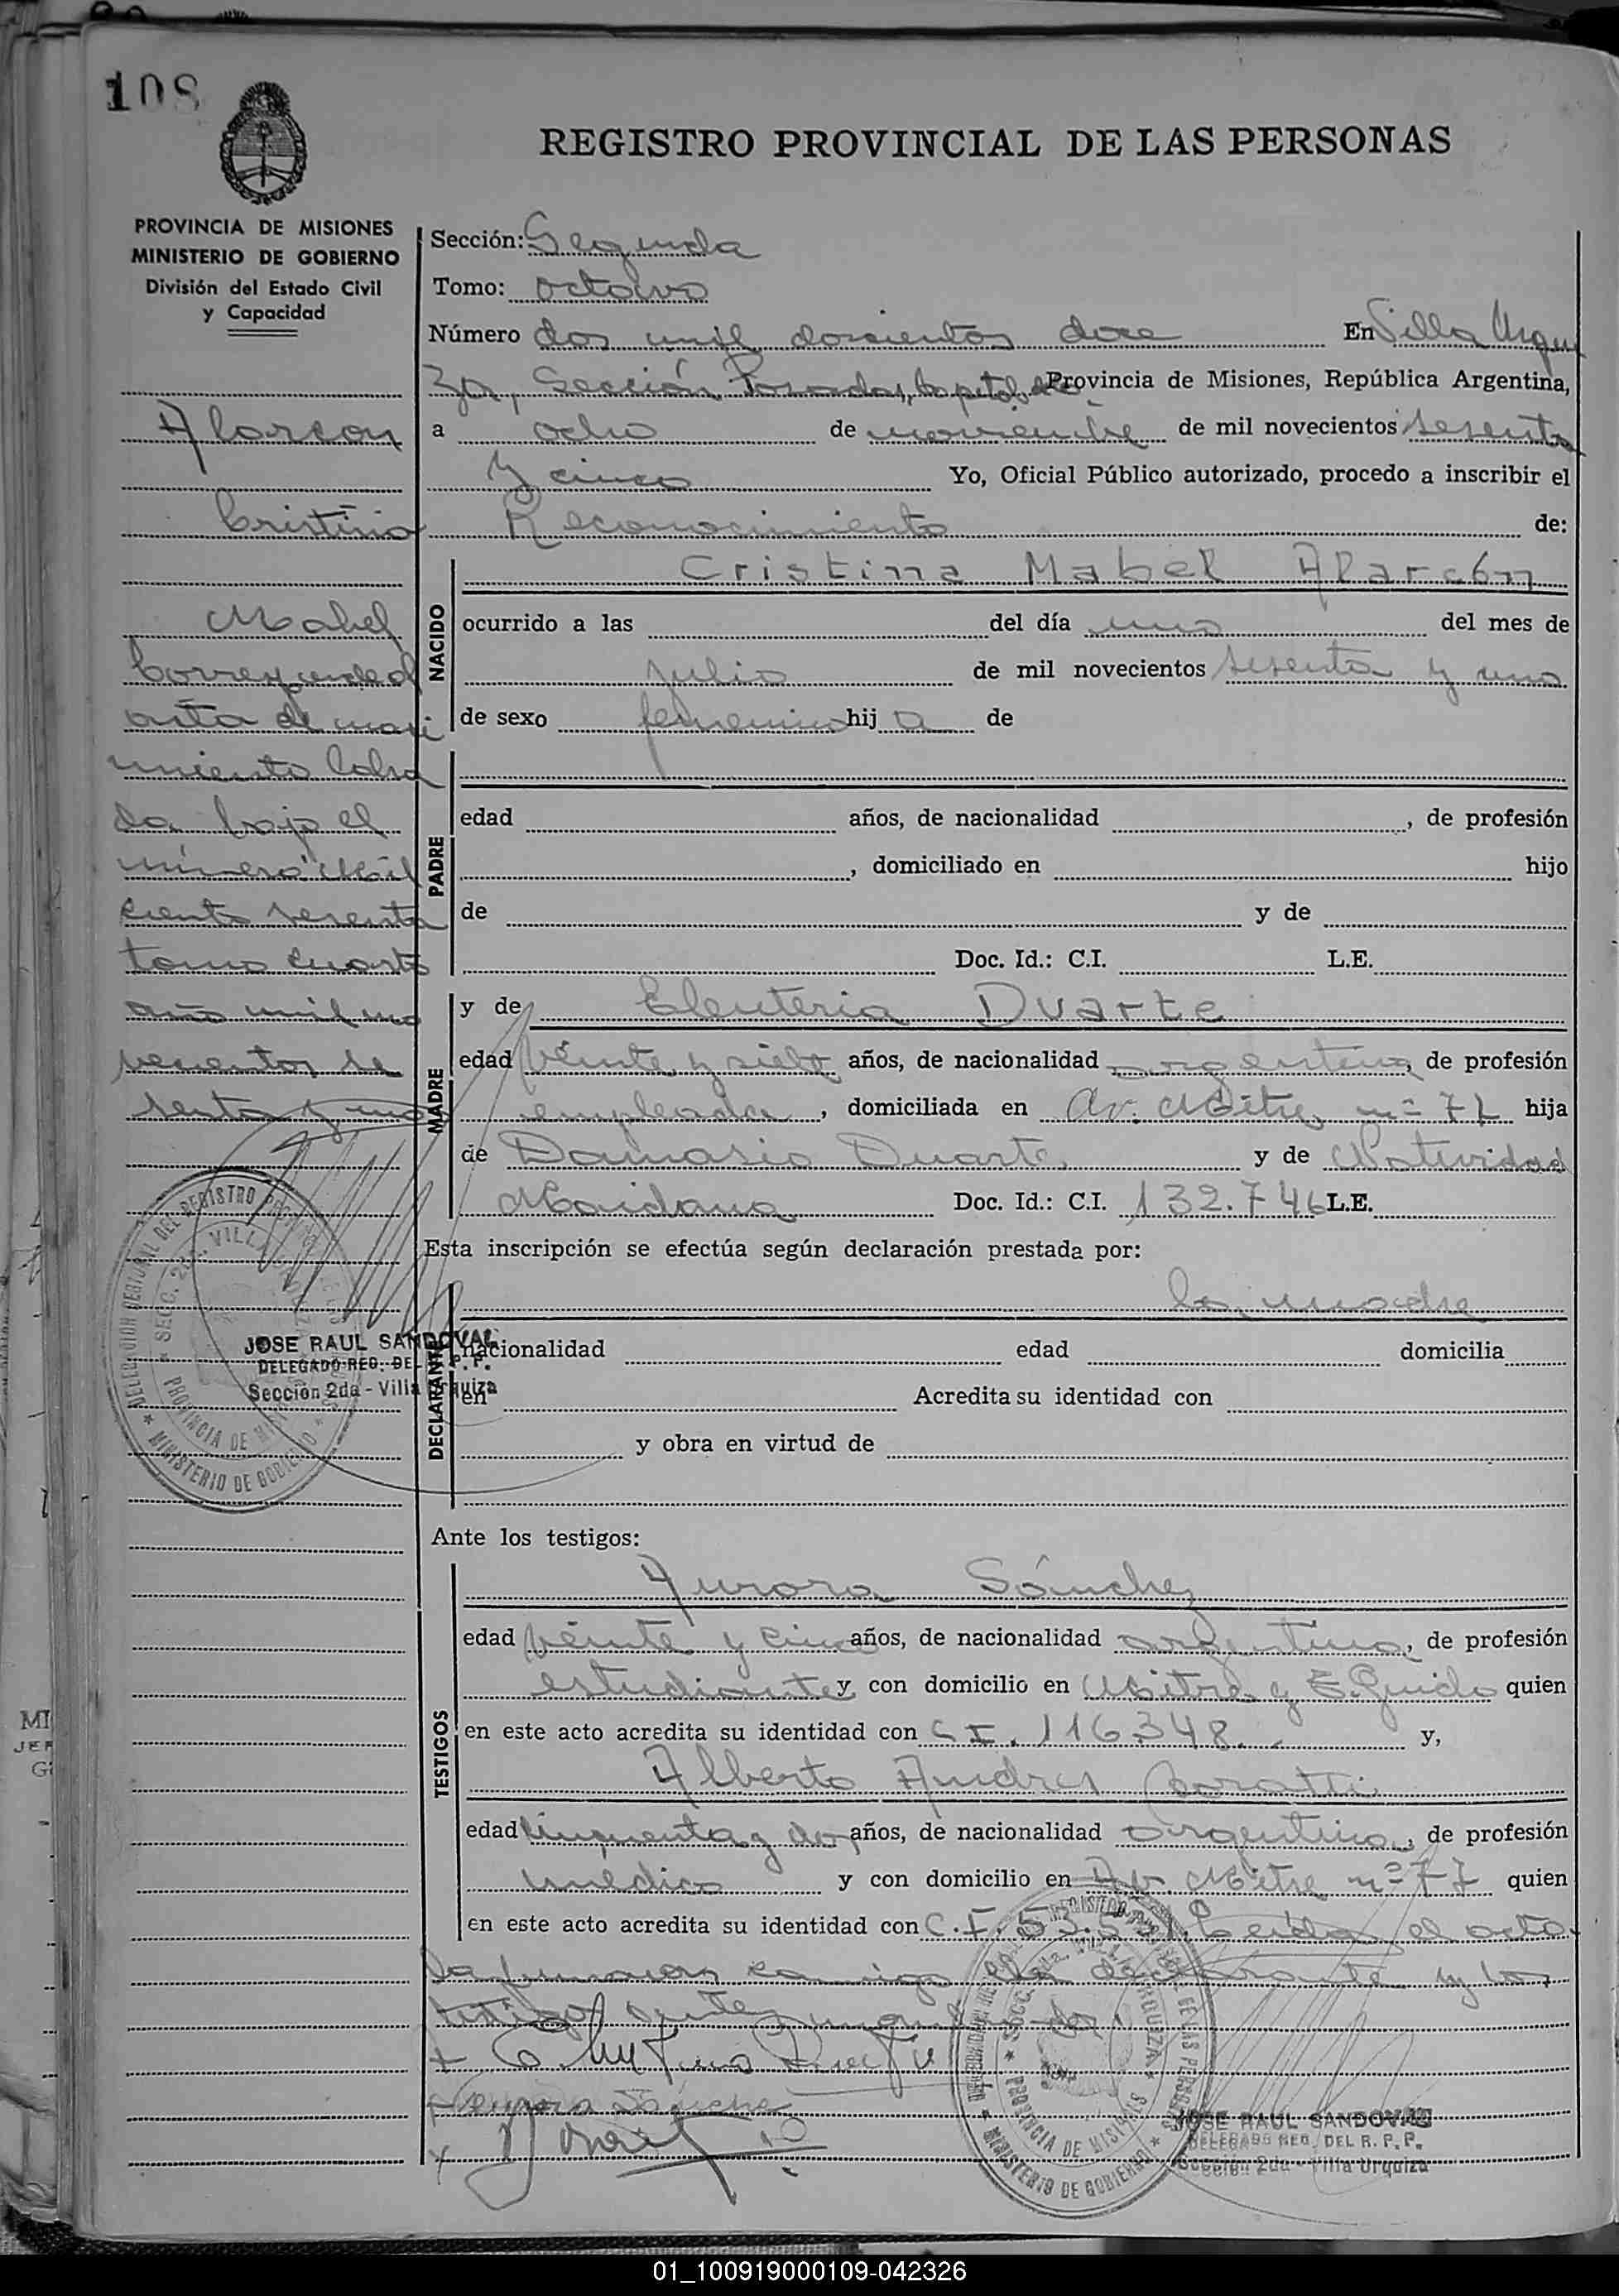 108
REGISTRO PROVINCIAL DE LAS PERSONAS
PROVINCIA DE MISIONES
MINISTERIO DE GOBIERNO
División del Estado Civil
y Capacidad
Alarcon
Cristina
Mabel
Corresponde al
acta de naci
miento labra
da bajo el
número Mil
ciento sesenta
tomo cuarto
año mil no
vecientos se
senta y uno
JOSE RAUL SANDOVAL
DELEGADO REG. DEL R. P. P.
Sección 2da - Villa Urquiza
Sección: Segunda
Tomo: octavo
Número dos mil doscientos doce En Villa Urqui
za, Sección Posadas, Capital de Provincia de Misiones, República Argentina,
a ocho de noviembre de mil novecientos sesenta
y cinco Yo, Oficial Público autorizado, procedo a inscribir el
Reconocimiento de:
NACIDO
Cristina Mabel Alarcón
ocurrido a las del día uno del mes de
julio de mil novecientos sesenta y uno
de sexo femenino hij a de
PADRE
edad años, de nacionalidad , de profesión
, domiciliado en hijo
de y de
Doc. Id.: C.I. L.E.
MADRE
y de Eleuteria Duarte
edad veinte y siete años, de nacionalidad argentina, de profesión
empleada, domiciliada en Av. Mitre nº 77 hija
de Damasio Duarte y de Natividad
Maidana Doc. Id.: C.I. 132.746 L.E.
Esta inscripción se efectúa según declaración prestada por:
DECLARANTE
la madre
nacionalidad edad domicilia
en Acredita su identidad con
y obra en virtud de
Ante los testigos:
TESTIGOS
Aurora Sánchez
edad veinte y cinco años, de nacionalidad argentina, de profesión
estudiante y con domicilio en Mitre y E. Guido quien
en este acto acredita su identidad con C I. 116348. y,
Alberto Andres
edad cinquenta y dos años, de nacionalidad argentino, de profesión
medico y con domicilio en Av. Mitre nº 77 quien
en este acto acredita su identidad con C.I. Leída el acta
la firman conmigo la declarante y los
testigos
Aurora Sánchez
DELEGACION REGIONAL DEL REGISTRO PROVINCIAL DE LAS PERSONAS
SECC. 2da. VILLA URQUIZA
PROVINCIA DE MISIONES
MINISTERIO DE GOBIERNO
JOSE RAUL SANDOVAL
DELEGADO REG. DEL R. P. P.
Sección 2da - Villa Urquiza
01_100919000109-042326